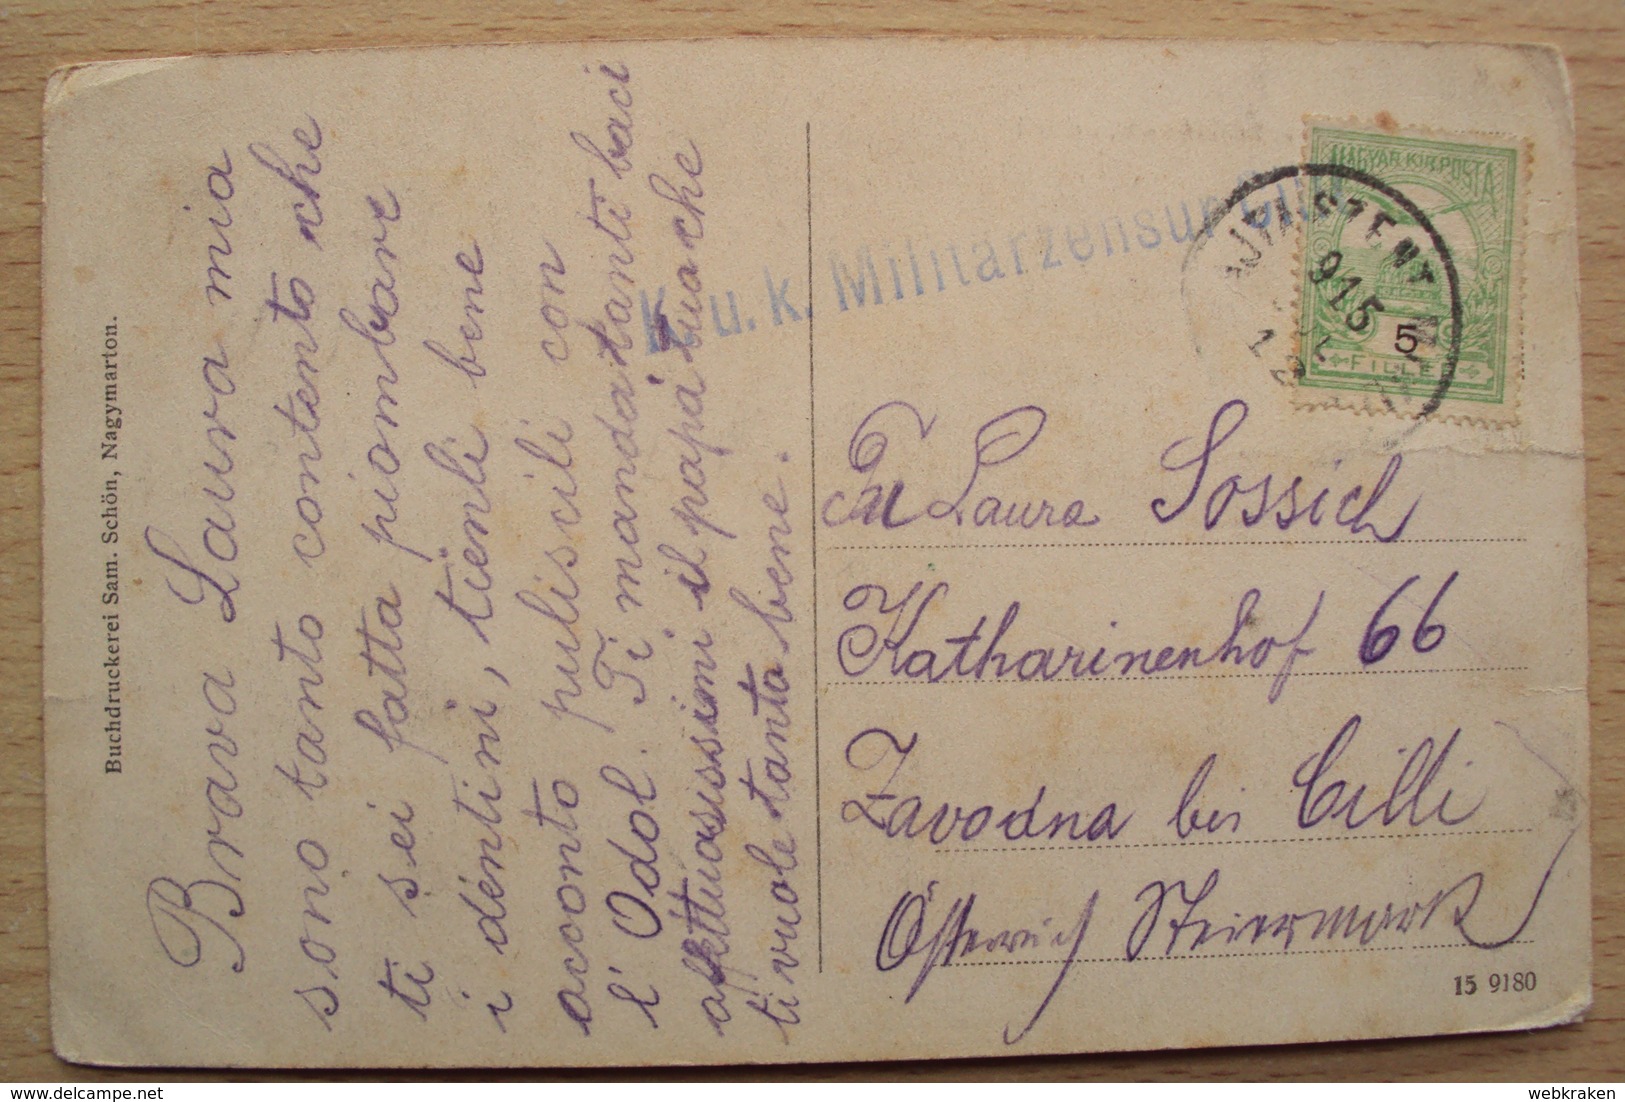 Buchdruckerei Sam. Schön, Nagymarton.
Brava Laura mia
sono tanto contento che
ti sei fatta piombare
i dentini, tienli bene
acconto puliscili con
l'Odol. Ti manda tanti baci
affettuosissimi il papá tuo che
ti vuole tanto bene.
K. u. k. Militärzensur Cilli
MAGYAR KIR. POSTA
915
5
FILLER
Laura Sossich
Katharinenhof 66
Zavodna bei Cilli
Österreich Steiermark
15 9180
webkraken